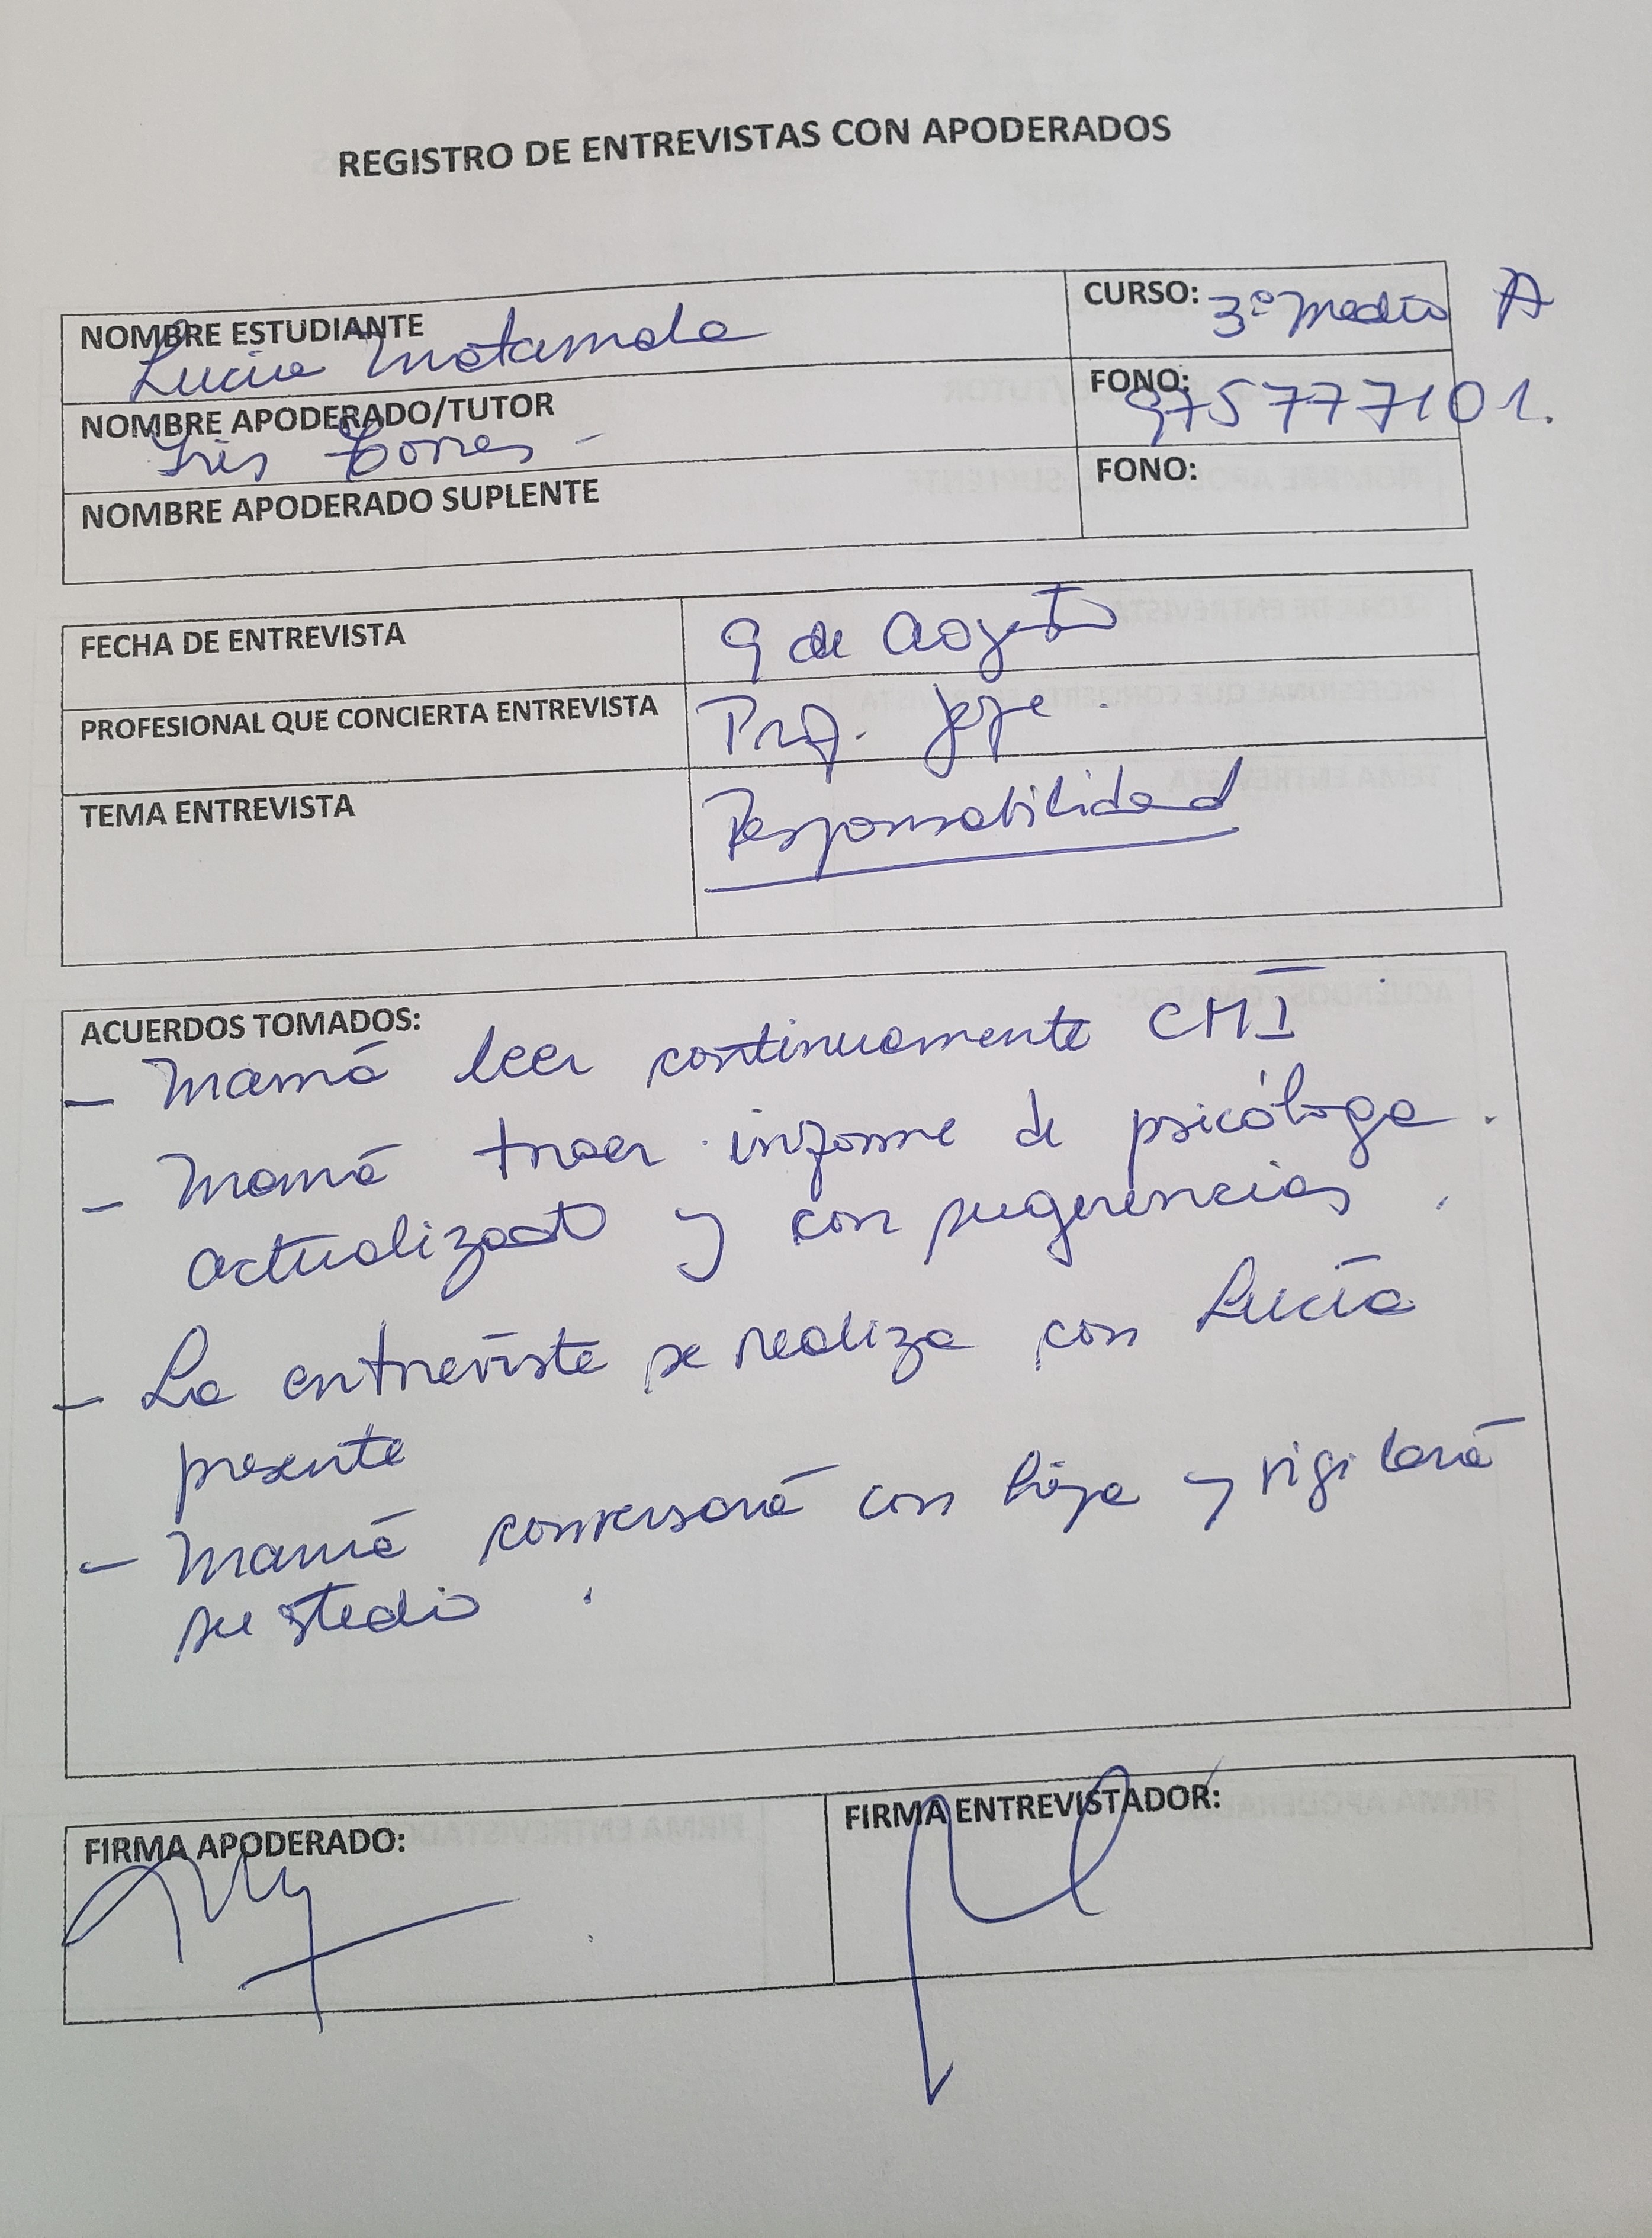 REGISTRO DE ENTREVISTAS CON APODERADOS
NOMBRE ESTUDIANTE
Lucia Matamala
CURSO: 3º Medio A
NOMBRE APODERADO/TUTOR
Iris Torres -
FONO: 975777101.
NOMBRE APODERADO SUPLENTE
FONO:
FECHA DE ENTREVISTA
9 de Agosto
PROFESIONAL QUE CONCIERTA ENTREVISTA
Prof. Jefe.
TEMA ENTREVISTA
Responsabilidad
ACUERDOS TOMADOS:
- Mamá leer continuamente CMI
- Mamá traer informe de psicóloga.
actualizado y con sugerencias.
- La entrevista se realiza con Lucía
presente
- Mamá conversará con hija y vigilará
su studio.
FIRMA APODERADO:
FIRMA ENTREVISTADOR: